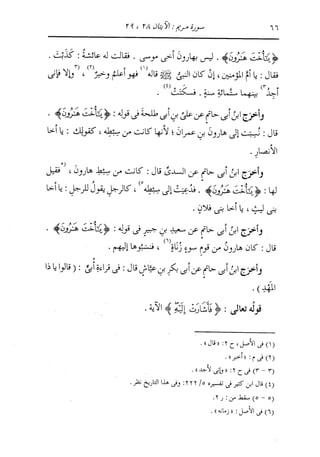 ٦٦ سورة مريم : الآيتان ٢٨ ، ٢٩
﴿يَٰٓأُخْتَ هَٰرُونَ﴾ . ليس بهارون أخى موسى . فقالت له عائشة : كذبتَ .
فقال : يا أمَّ المؤمنين ، إن كان النبىُّ ﷺ قاله(١) فهو أعلمُ وخيرٌ(٢) ، (٣)وإلا فإنى
أجدُ(٣) بينهما ستَّمائةِ سنةٍ . فسكتت(٤) .
وأخرَج ابنُ أبى حاتمٍ عن علىِّ بنِ أبى طلحةَ فى قوله : ﴿يَٰٓأُخْتَ هَٰرُونَ﴾ .
قال : نُسِبَت إلى هارونَ بنِ عمرانَ ؛ لأنها كانت من سِبْطِه ، كقولِك : يا أخا
الأنصارِ .
وأخرَج ابنُ أبى حاتمٍ عن السدىِّ قال : كانت من سِبْطِ هارونَ ، (٥)فقيل
لها : ﴿يَٰٓأُخْتَ هَٰرُونَ﴾ . فدُعِيَت إلى سِبْطِه(٥) ، كالرجلِ يقولُ للرجلِ : يا أخا
بنى ليثٍ ، يا أخا بنى فلانٍ .
وأخرَج ابنُ أبى حاتمٍ عن سعيدِ بنِ جبيرٍ فى قوله : ﴿يَٰٓأُخْتَ هَٰرُونَ﴾ .
قال : كان هارونُ من قومِ سوءٍ زُناةٍ(٦) ، فنسَبُوها إليهم .
وأخرَج ابنُ أبى حاتمٍ عن أبى بكرِ بنِ عيَّاشٍ قال : فى قراءةِ أُبىٍّ : ( قالوا يا ذا
المَهْدِ ) .
قولُه تعالى : ﴿فَأَشَارَتْ إِلَيْهِ﴾ الآية .
(١) فى الأصل ، ح ٢ : «قال» .
(٢) فى م : «أخبر» .
(٣ - ٣) فى ح ٢ : «وإنى لأجد» .
(٤) قال ابن كثير فى تفسيره ٥/ ٢٢٢ : وفى هذا التاريخ نظر .
(٥ - ٥) سقط من : ر ٢ .
(٦) فى الأصل : «زمانه» .